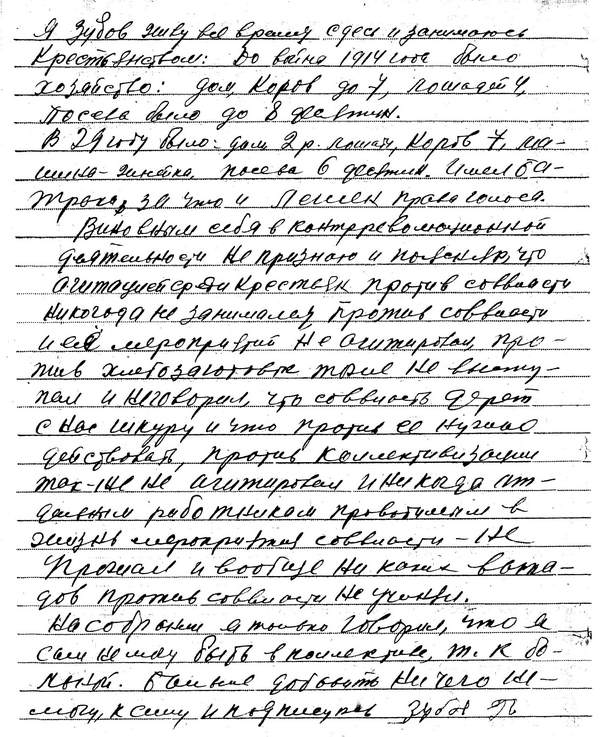 Я Зубов живу все время здесь и занимаюсь
Крестьянством: До война 1914 года было
хозяйство: дом, Коров до 7, лошадей 4,
посева было до 8 десятин.
В 29 году было: дом, 2 р. лошад, Коров 7, ма-
шина-жнейка, посева 6 десятин. Имел ба-
трока, за что и Лешен права голоса.
Виновным себя в контрреволюционной
деятельности не признаю и поясняю, что
агитацией среди Крестьян против соввласти
никогда не занимался против соввласти
и её мероприятий не агитировал, про-
тив хлебозаготовок тоже не высту-
пал и неговорил, что соввласть дерет
с нас шкуру и что против ее нужно
действовать, против коллективизации
так-же не агитировал и никогда от-
дельным работникам проводимым в
жизнь мероприятия соввласти - не
и вообще ни каких выпа-
дов против соввласти не учинял.
На собрании я только говорил, что я
сам немогу быть в коллективе, т. к бо-
льной. больше добавить ничего не-
могу, к сему и подписуюсь Зубов